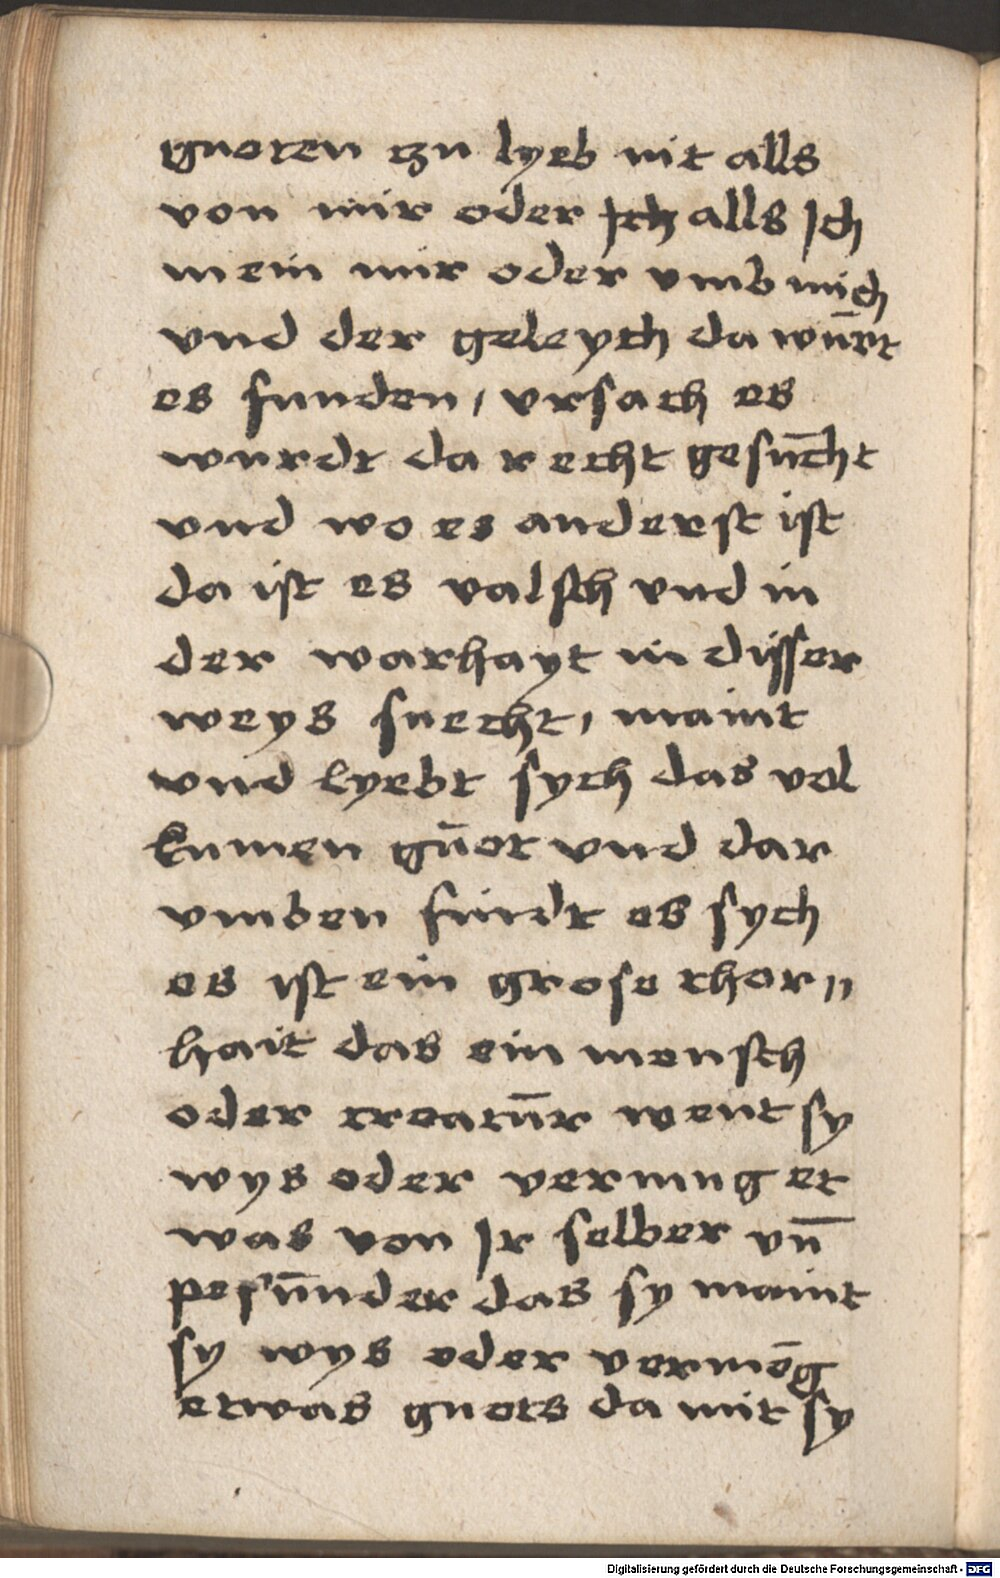 guoten zu lyeb nit alls
von mir oder Ich alls Ich
mein mir oder vmb mich
vnd der geleych da wūrt
es funden, vrsach es
wurdt da recht gesūcht
vnd wo es anderst ist
da ist es valsch vnd in
der warhayt in disser
weys suecht, maint
vnd lyebt sych das vol
kumen gūot vnd dar
vmben findt es sych
es ist ein grose thor〃
hait das ein mensch
oder creatūr went sy
wys oder vermug et
was von Ir selber vn̄
pesūnder das sy maint
sy wys oder vermōg
etwas guots da mit sy
Digitalisierung gefördert durch die Deutsche Forschungsgemeinschaft - DFG